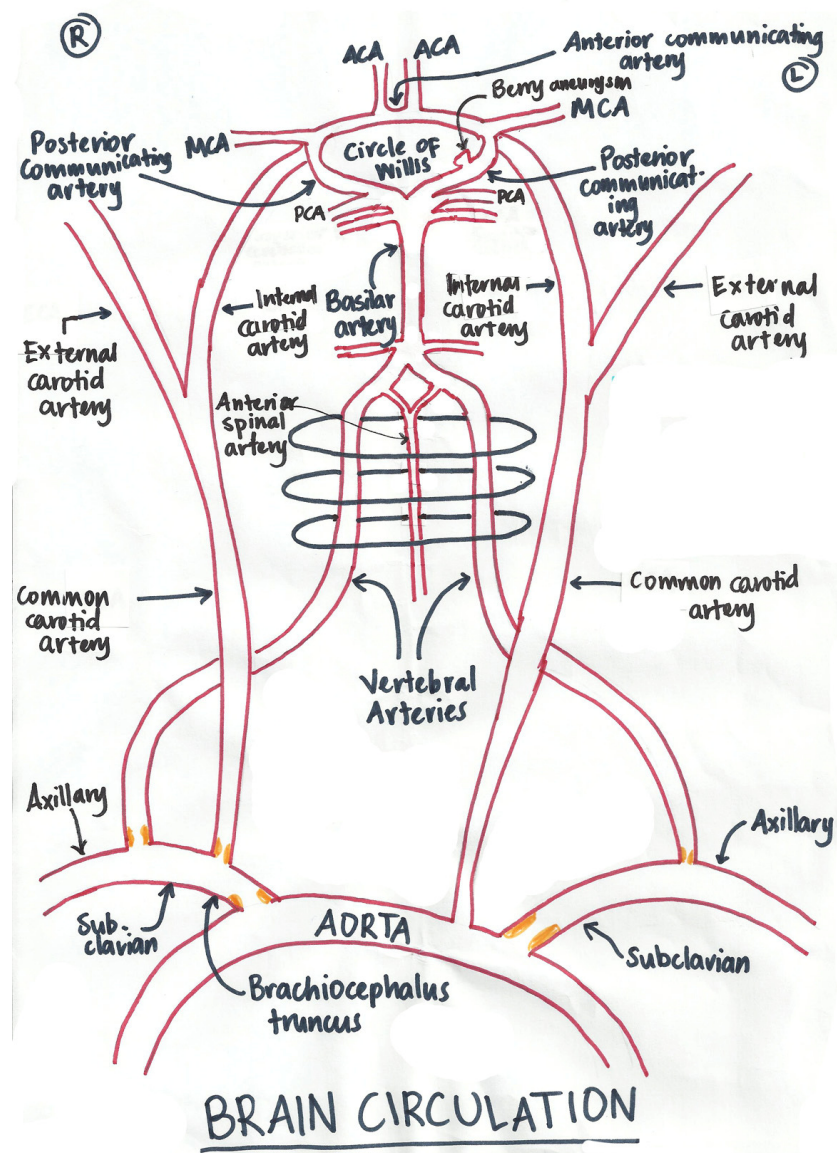 R
ACA ACA
Anterior communicating
artery
L
Berry aneurysm
MCA
MCA
Posterior
communicating
artery
Circle of
Willis
Posterior
communicat-
ing
artery
PCA
PCA
Internal
carotid
artery
Basilar
artery
Internal
carotid
artery
External
carotid
artery
External
carotid
artery
Anterior
spinal
artery
Common
carotid
artery
Common carotid
artery
Vertebral
Arteries
Axillary
Axillary
Sub-
clavian
AORTA
Subclavian
Brachiocephalus
truncus
BRAIN CIRCULATION